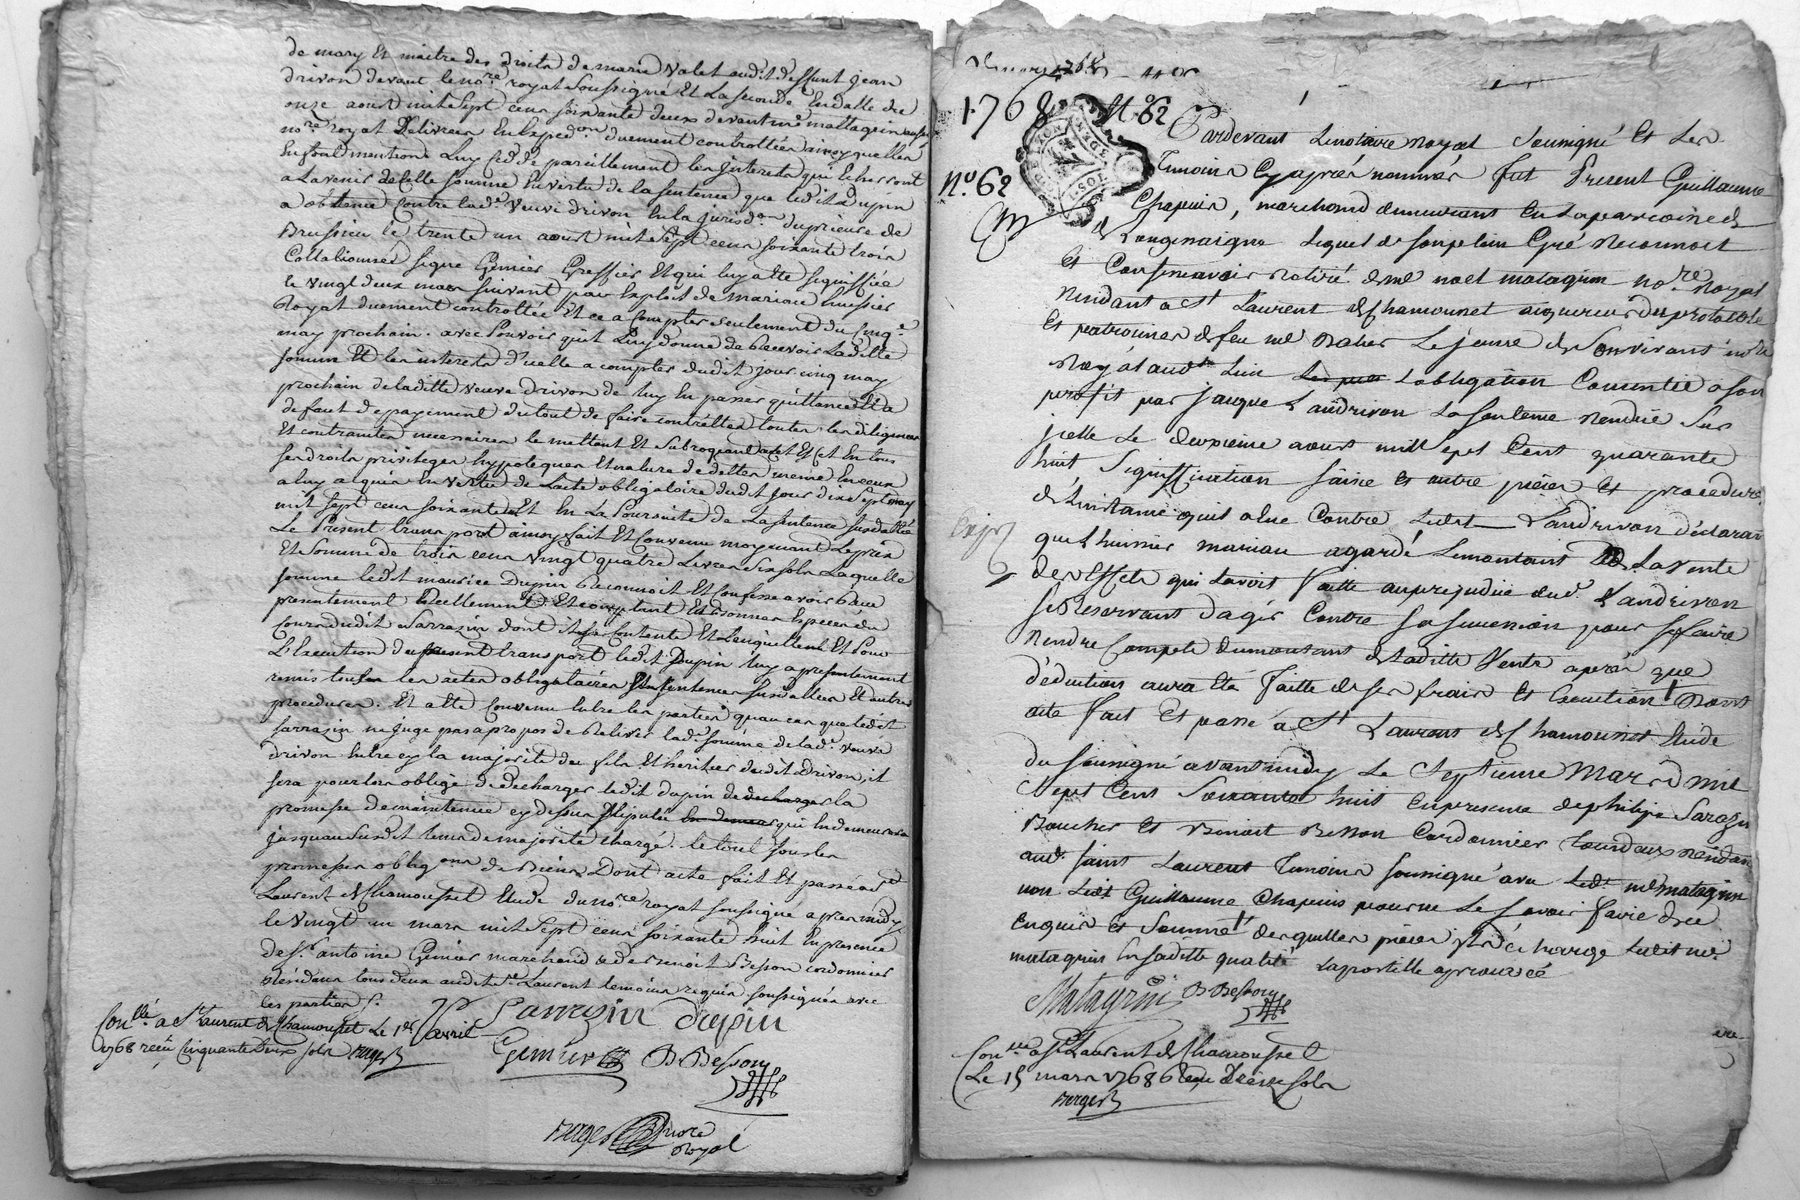 de mary Et maitre des droits de marie Valet audit deffunt jean
drivon devant le nore royal soussigné Et la seconde En datte du
onze aoust mil sept cens soixante deux devant me mattagrin aussi
nore royal Delivrées En Expedon duement controllées ainsy quelles
En font mention Luy cede pareillement les Interets qui Echerront
a Lavenir de Cette somme En vertu de la sentence que ledit Dupin
a obtenue Contre lade veuve drivon En la jurisdon du prieuré de
Brussieu le trente un aoust mil sept cens soixante trois
Collationnée signé Gemier Greffier Et qui luy a Eté signiffiée
le vingt deux mars suivant par Exploit de Mariau huissier
Royal duement controllée Et ce a Compter seulement du Cinqe
may prochain. avec Pouvoir quil Luy donne de Recevoir Laditte
somme Et les interets d'icelle a compter dudit jour cinq may
prochain de laditte veuve drivon de luy En passer quittance Et a
defaut de payement du tout de faire contr'elle toutes les diligences
Et contraintes necessaires le mettant Et subrogeant a cet Effet En tous
ses droits privileges hypoteques Et nature de dettes meme En ceux
a luy acquis En vertu de Lacte obligatoire dudit jour dix sept may
mil sept cens soixante Et En La Poursuite de La sentence susdattée
Le Present transport ainsy fait Et Convenu moyenant Le prix
Et Somme de trois cens vingt quatre Livres six sols Laquelle
somme ledt maurice Dupin Reconnoit Et Confesse avoir Reçue
presentement Reellement Et comptant Et En bonnes Especes du
Cours dudit Sarrazin dont il se Contente Et L'enquitte Et Pour
L'Execution du present transport ledit Dupin luy a presentement
remis tous les actes obligatoires Et sentences susdattées Et autres
procedures. Et a Eté Convenu Entre les parties quau cas que ledit
sarrazin ne juge pas a propos de Retirer lade somme de lade veuve
drivon Entre cy la majorité du fils Et heritier dudit Drivon, il
sera pour lors obligé de decharger ledit dupin de la
promesse de maintenue cy dessus stipulée qui En demeurera
jusquau susdit tems de majorité chargé. le tout sous les
promesses obligons de Biens Dont acte fait Et passé a St
Laurent de Chamousset Etude du nore royal soussigné apres midy
le vingt un mars mil sept cens soixante huit En presence
de Sr antoine Gemier marchand Et de Benoit Besson cordonnier
Residans tous deux audit St Laurent temoins requis soussignés avec
les parties
Sarrazin Dupin
Conllé a St Laurent de Chamousset Le 1er avril
1768 reçu Cinquante deux sols Berger
Gemier B Besson
Berger Nore
Royal
1768 No 62
No. 62
Pardevant Le notaire royal Sousigné Et Les
Temoins Cy aprés nommés Fut Present Guillaume
Chapuis, marchand demeurant En la parroisse de
Longessaigne Lequel de son plein Gré Reconnoit
Et Confesse avoir Retiré de me noel matagrin nore Royal
Residant a St Laurent de Chamousset aquereur du protocolle
Et patrimoines de feu me Raher Le jeune de Son vivant nore
Royal audt Lieu Lobligation Consentie a son
profit par jaques Landrivon La Sentence Rendüe Sur
jcelle Le deuxieme aoust mill sept Cent quarante
huit Signiffication saisie et autre pieces Et procedure
de Linstance quil a Eue Contre Ledit Landrivon déclarant
que L'huissier mariau a gardé Le montant de La vente
des Effets qui Lavoit Faitte au prejudice dud. Landrivon
se Reservant dagir Contre sa sucession pour se faire
Rendre Compte du montant de Laditte Vente après que
déduction aura Eté Faitte de ses frais et Execution Dont
acte Fait Et passé a St Laurent de Chamousset Etude
du sousigné avant midy Le Septieme Mars mil
Sept Cent Soixante huit En presence de philipe Sarazin
Boucher Et Benoit Besson Cordonnier tous deux Residants
audt Saint Laurent Temoins sousigné avec Ledt me matagrin
non Ledt Guillaume Chapuis pour ne Le Savoir Faire de ce
Enquis Et Sommé desquelles pieces Et decharge Ledit me
matagrin En saditte qualité Lapostille aprouvée
Matagrin B Besson
Conllé a St Laurent de Chamousset
Le 15 mars 1768 Reçu treize sols
Berger